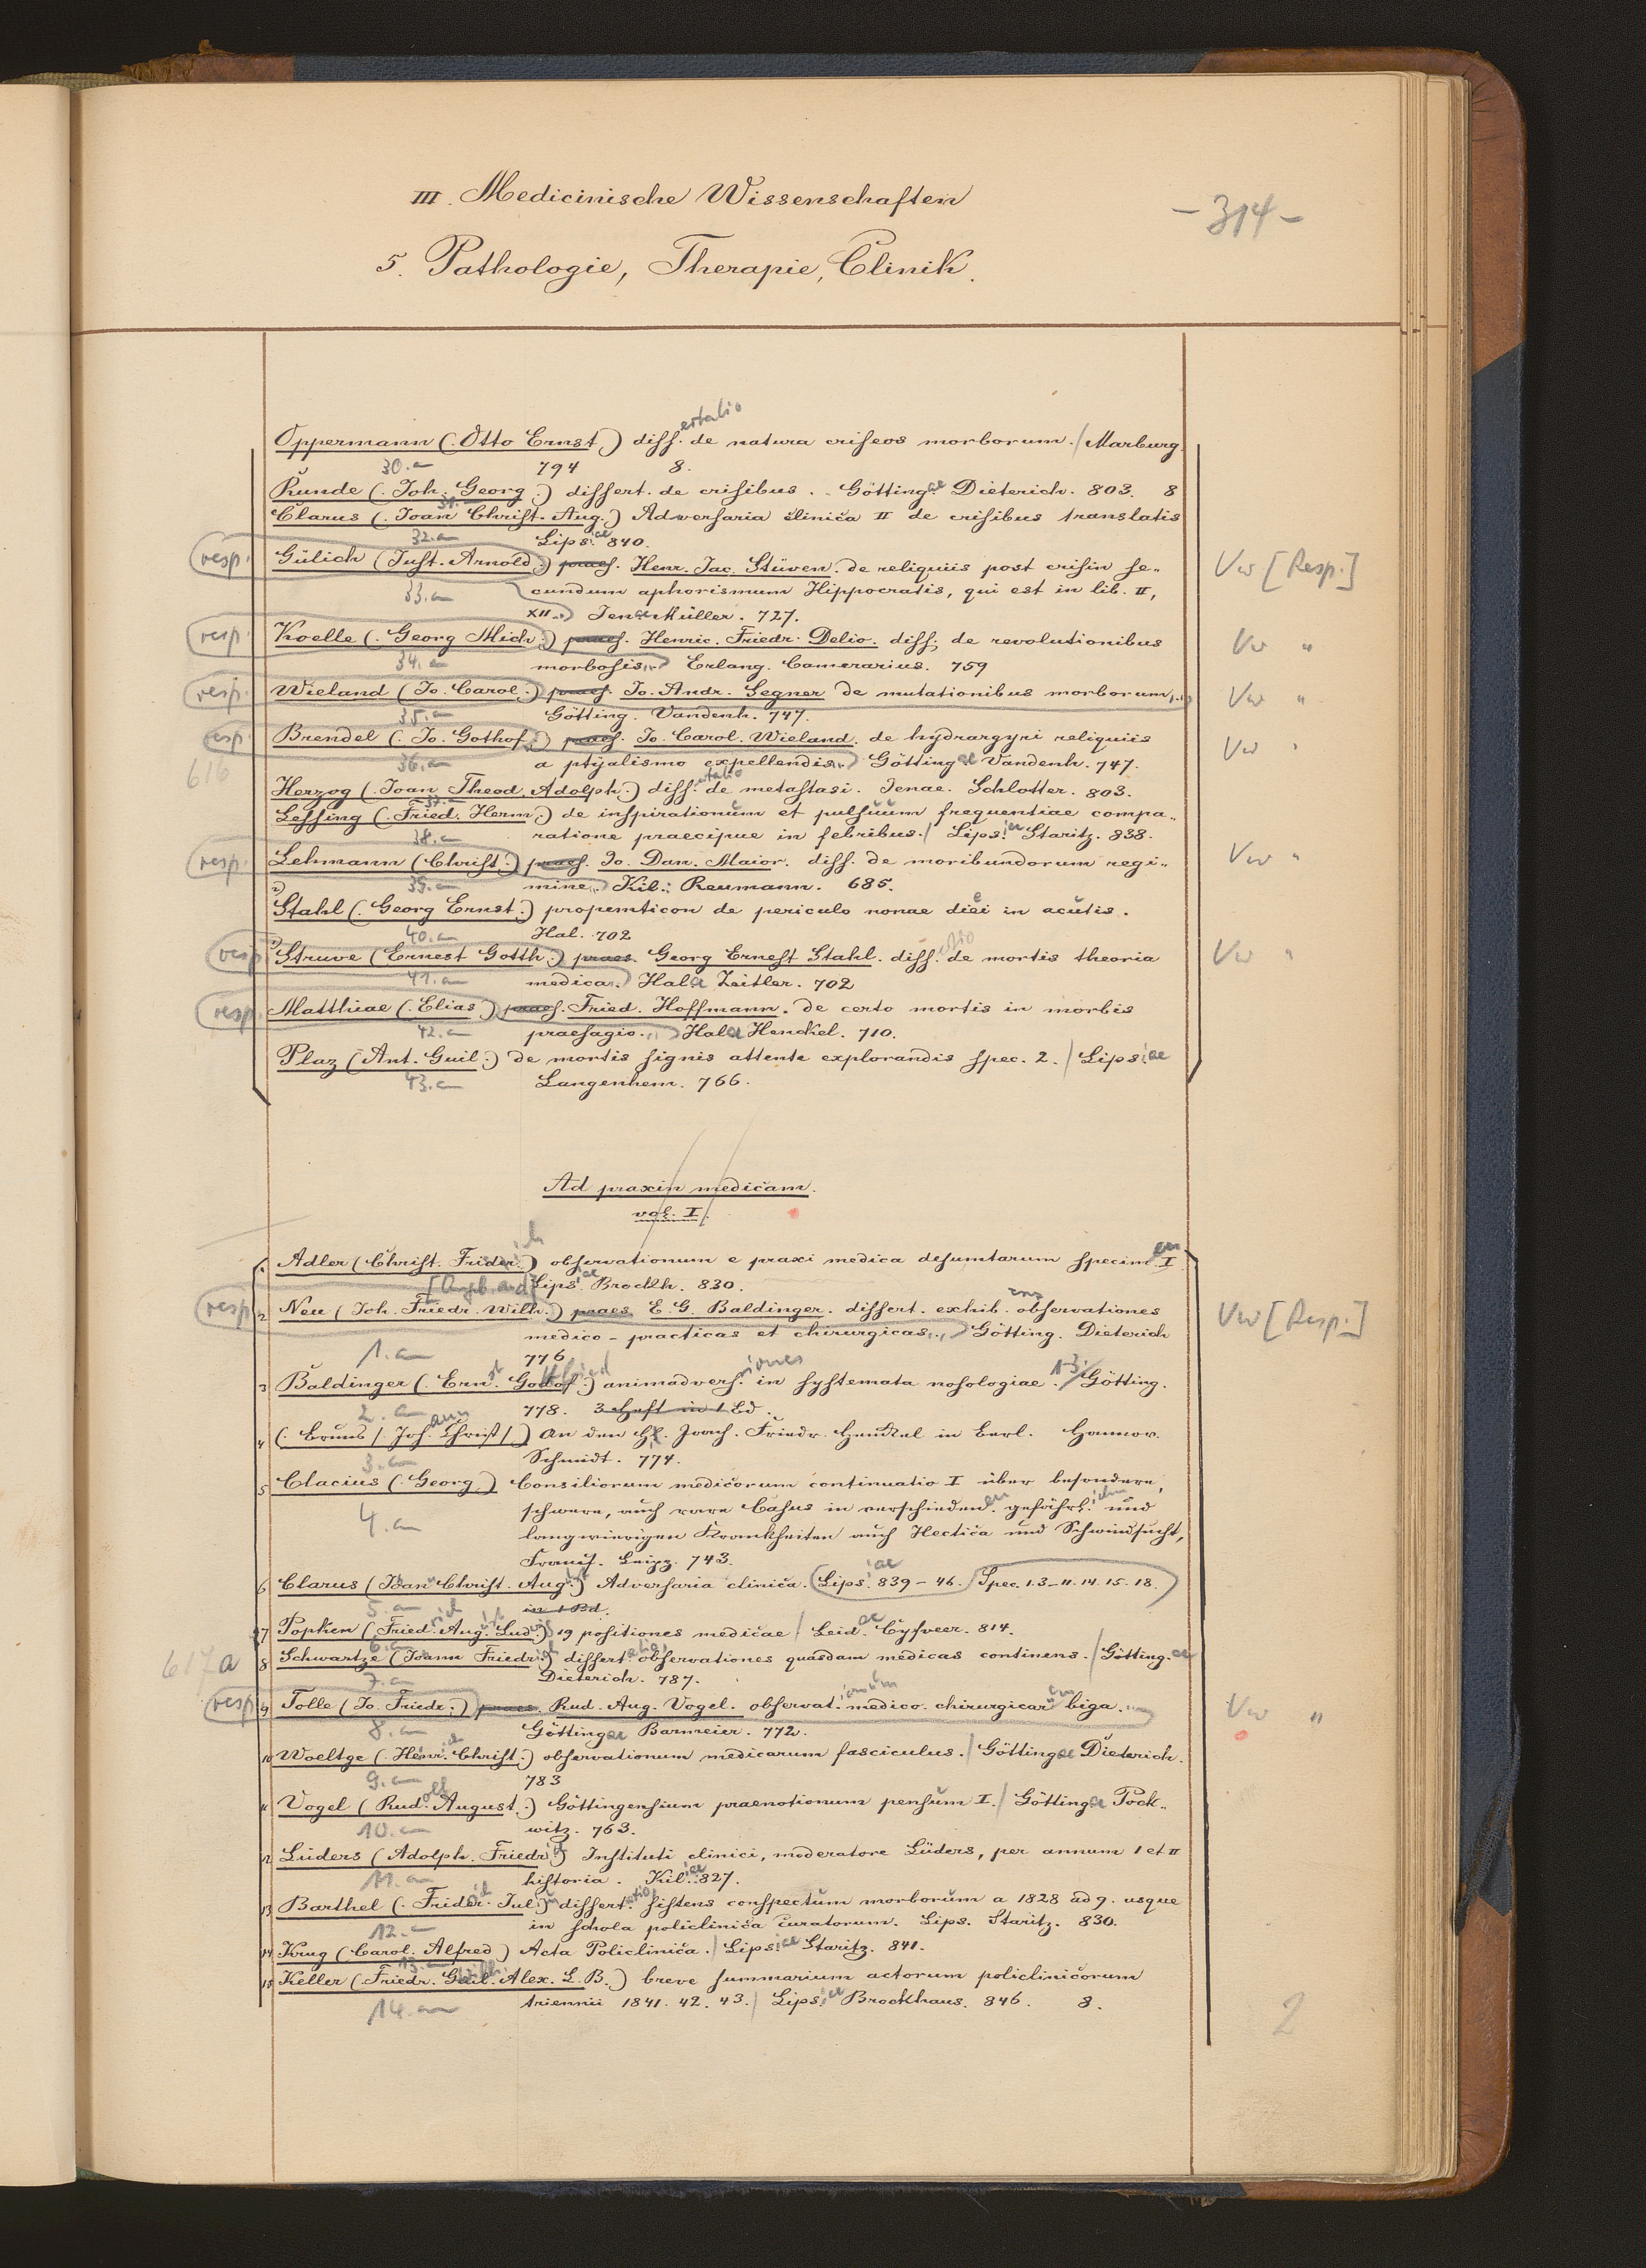 III. Medicinische Wissenschaften
- 314 -
5. Pathologie, Therapie, Clinik.
ertatio
Oppermann (. Otto Ernst.) diss. de natura criseos morborum. / Marburg.
30.a 794 8.
Runde (. Joh. Georg.) dissert. de crisibus. . Göttingae Dieterich. 803. 8
31.
Clarus (. Joan Christ. Aug.) Adversaria clinica II de crisibus translatis
32.a Lips.iae 840.
resp. Gülich (Just. Arnold.) praes. Henr. Jac. Stüven. de reliquiis post crisin se„ Vw [Resp.]
33.a cundum aphorismum Hippocratis, qui est in lib. II,
XII.. Jenae Müller. 727.
resp. Koelle (. Georg Mich.) praes. Henric. Friedr. Delio. diss. de revolutionibus Vw "
34.a morbosis.. Erlang. Camerarius. 759
resp. Wieland (Jo. Carol.) praes. Jo. Andr. Segner de mutationibus morborum... Vw "
35.a Götting. Vandenh. 747.
resp. Brendel (. Jo. Gothof.) praes. Jo. Carol. Wieland. de hydrargyri reliquiis Vw "
616 36.a a ptyalismo expellendis.. Göttingae Vandenh. 747.
Herzog (. Joan Theod. Adolph.) diss.ertatio de metastasi. Jenae. Schlotter. 803.
37.a
Lessing (. Fried. Herm.) de inspirationum et pulsuum frequentiae compa„
38.a ratione praecipue in febribus. / Lips.iae Staritz. 838.
resp. Lehmann (Christ.) praes. Jo. Dan. Maior. diss. de moribundorum regi„ Vw "
39.a mine.. Kil.: Reumann. 685.
Stahl (. Georg Ernst.) propemticon de periculo nonae diei in acutis.
40.a Hal. 702
resp. Struve (Ernest Gotth.) praes. Georg Ernest Stahl. diss. de mortis theoria Vw "
41.a medica.. Halae Zeitler. 702
resp. Matthiae (. Elias.) praes. Fried. Hoffmann. de certo mortis in morbis
42.a praesagio.. Halae Henckel. 710.
Plaz (Ant. Guil.) de mortis signis attente explorandis spec. 2. / Lips.iae
43.a Langenhem. 766.
Ad praxin medicam.
vol. I.
1 Adler (Christ. Frider.ich) observationum e praxi medica desumtarum specimen I
Lips.iae Brockh. 830.
resp. 2 Neu (Joh. Friedr. Wilh.) praes. E. G. Baldinger. dissert. exhib.ens observationes Vw [Resp.]
medico-practicas et chirurgicas.. Götting. Dieterich
1.a 776.
3 Baldinger (. Ern.st Gottfried) animadvers.iones in systemata nosologiae. 1-3. / Götting.
2.a 778. 3 Heft in 1 Bd.
4 (. Bruns /. Joh.ann Christ /) An den H. Joach. Friedr. Henckel in Berl. Hannov.
3.a Schmidt. 774.
5 Clacius (. Georg.) Consiliorum medicorum continuatio I über besondere,
schwere, auch rare Casus in verschieden.en gefährl.ichen und
4.a langwierigen Krankheiten auch Hectica und Schwindsucht,
Leipz. 743.
6 Clarus (Joan Christ. Aug.) Adversaria clinica. Lips.iae 839-46. / Spec. 1.3-11.14.15.18.
5.a in 1 Bd.
7 Popken (Fried.rich Aug. Lud.) 19 positiones medicae / Leid.ae Cyfveer. 814.
6.a
617a 8 Schwartze (Joann Friedr.) dissert.atio, observationes quasdam medicas continens. / Götting.ae
7.a Dieterich. 787.
resp. 9 Tolle (Jo. Friedr.) praes. Rud. Aug. Vogel. observat.ionum medico. chirurgicarum biga... Vw "
8.a Göttingae Barmeier. 772.
10 Woeltge (. Henr. Christ.) observationum medicarum fasciculus. / Göttingae Dieterich.
9.a 783
11 Vogel (Rud.olf August.) Göttingensium praenotionum pensum I. / Göttingae Pock„
10.a witz. 763.
12 Lüders (Adolph. Friedr.) Instituti clinici, moderatore Lüders, per annum I et II
11.a historia. Kil.iae 827.
13 Barthel (. Frider. Jul.) dissert.atio sistens conspectum morborum a 1828 ad 9. usque
12.a in schola policlinica curatorum. Lips. Staritz. 830.
14 Krug (Carol. Alfred) Acta Policlinica. / Lips.iae Staritz. 841.
13.a
15 Keller (. Friedr. Guil. Alex. L. B.) breve summarium actorum policlinicorum
14.a triennii 1841. 42. 43. / Lips.iae Brockhaus. 846. 8. 2